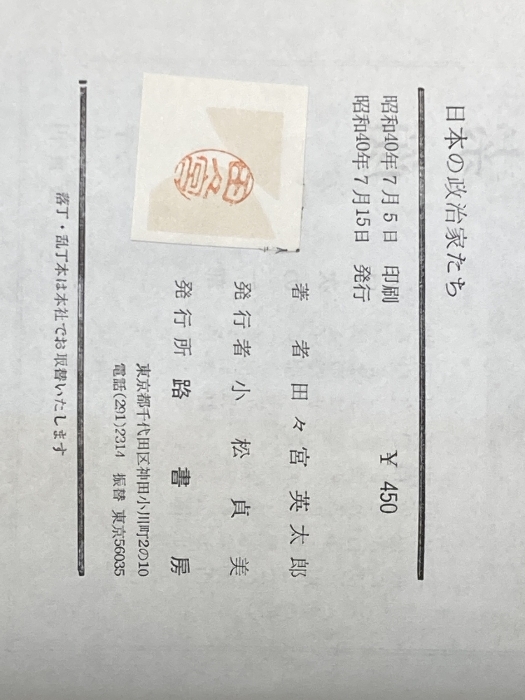 日本の政治家たち
昭和40年7月5日 印刷
昭和40年7月15日 発行
¥ 450
著者 田々宮英太郎
発行者 小松貞美
発行所 路書房
東京都千代田区神田小川町2の10
電話(291)2314 振替 東京56035
落丁・乱丁本は本社でお取替いたします